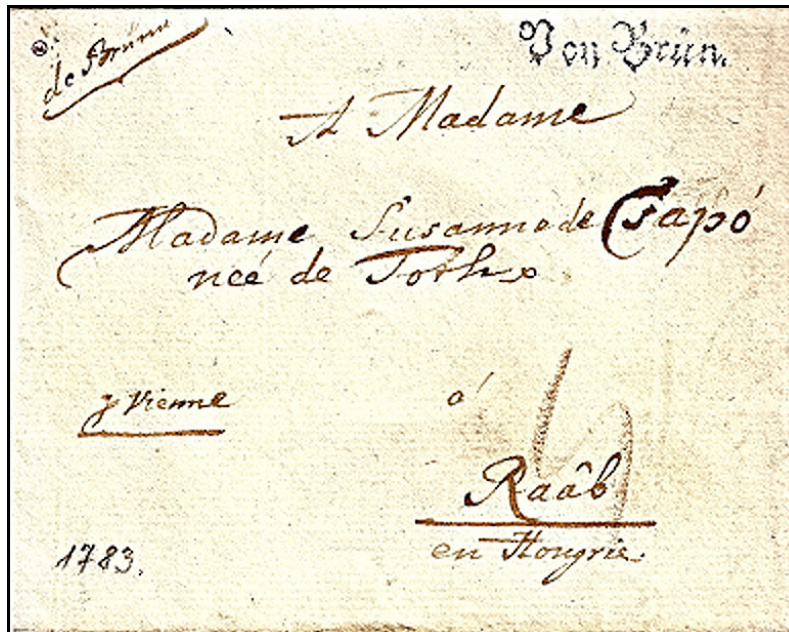 de Brünn
Von Brün.
A Madame
Madame Susanne de Csapó
neé de Toth
p Vienne
á
Raâb
en Hongrie.
1783.